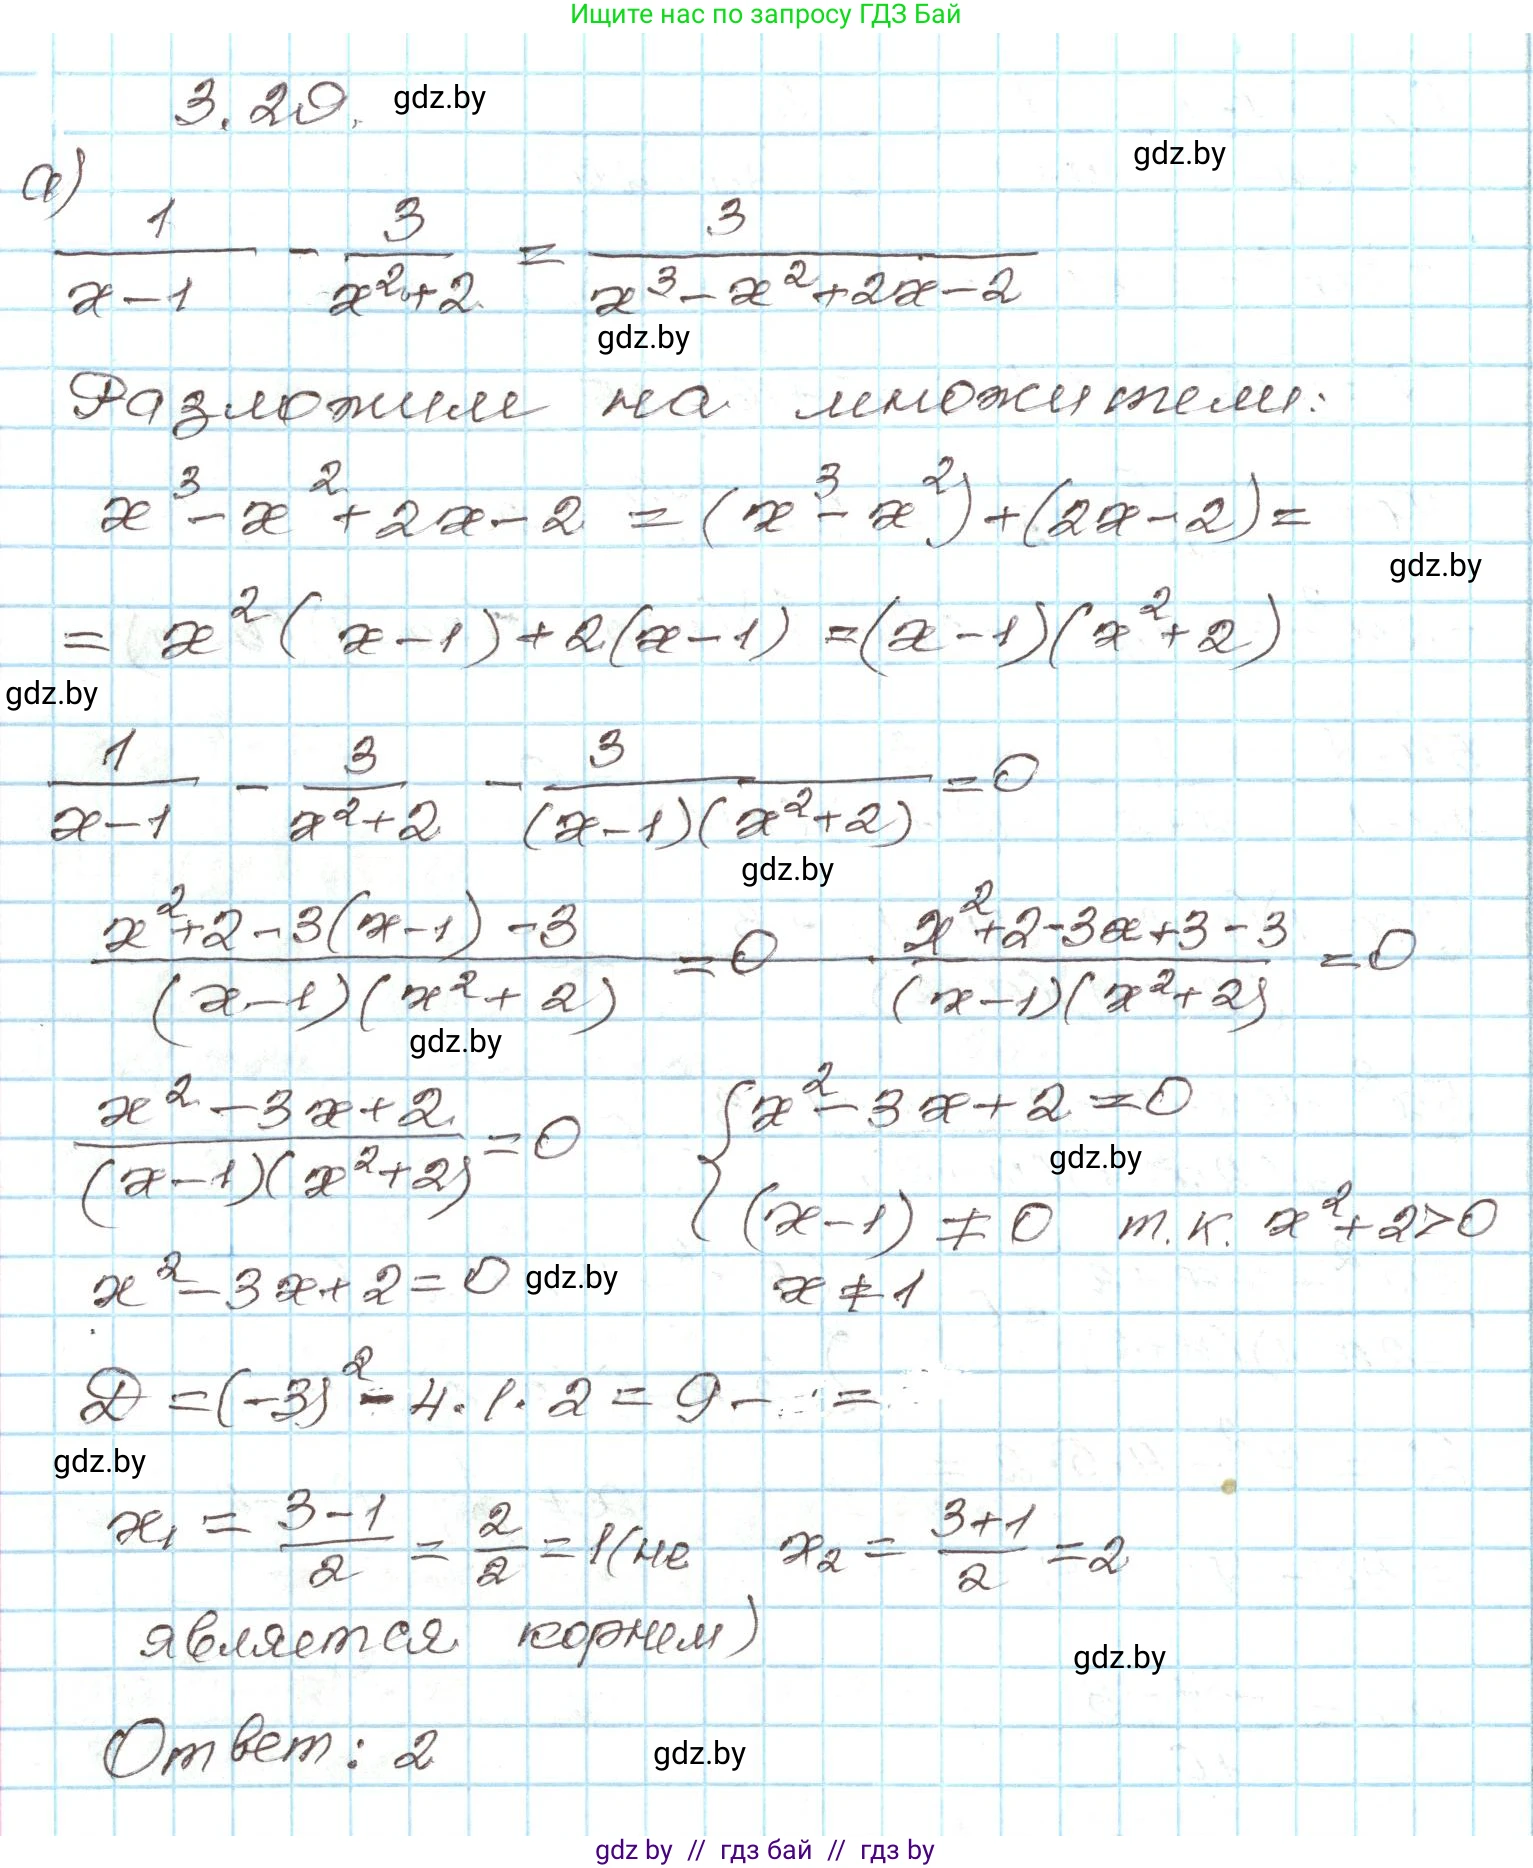 Ищите нас по запросу ГДЗ Бай
3.20. gdz.by
gdz.by
а)
1/(x-1) - 3/(x²+2) = 3/(x³-x²+2x-2)
gdz.by
Разложим на множители:
x³-x²+2x-2 = (x³-x²)+(2x-2)=
gdz.by
= x²(x-1)+2(x-1) =(x-1)(x²+2)
gdz.by
1/(x-1) - 3/(x²+2) - 3/((x-1)(x²+2)) =0
gdz.by
(x²+2-3(x-1)-3)/((x-1)(x²+2)) =0 (x²+2-3x+3-3)/((x-1)(x²+2)) =0
gdz.by
(x²-3x+2)/((x-1)(x²+2)) =0 { x²-3x+2=0
gdz.by
(x-1) ≠ 0 т.к. x²+2>0
x²-3x+2=0 gdz.by x≠1
D =(-3)²-4·1·2 = 9- =
gdz.by
x₁ = (3-1)/2 = 2/2 =1(не x₂ = (3+1)/2 =2
является корнем)
gdz.by
Ответ: 2 gdz.by
gdz by // гдз бай // гдз by